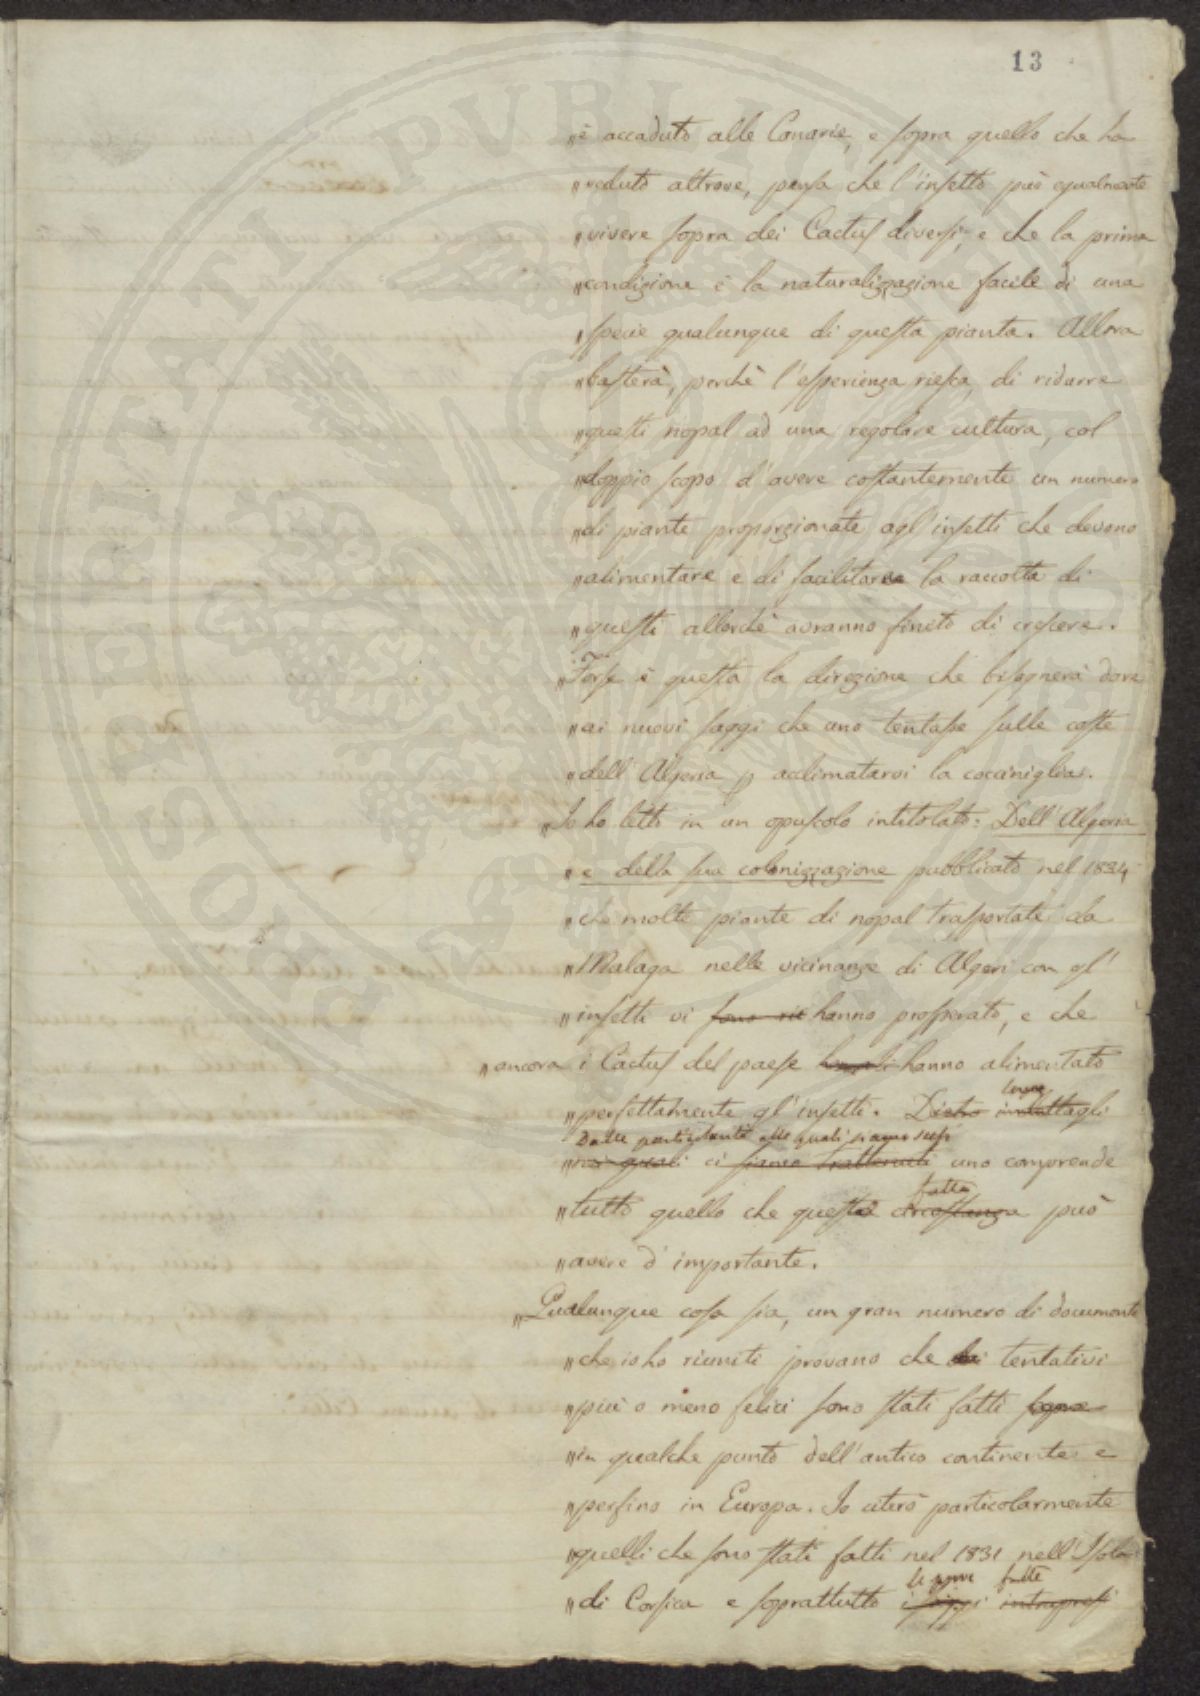 13
"è accaduto alle Canarie, e sopra quello che ha
"veduto altrove, pensa che l'insetto può egualmente
"vivere sopra dei Cactus diversi, e che la prima
"condizione è la naturalizzazione facile di una
"specie qualunque di questa pianta. Allora
"basterà, perchè l'esperienza riesca, di ridurre
"questi nopal ad una regolare cultura, col
"doppio scopo d'avere costantemente un numero
"di piante proporzionate agl'insetti che devono
"alimentare e di facilitare la raccolta di
"questi allorchè avranno finito di crescere.
"Forse è questa la direzione che bisognerà dare
"ai nuovi saggi che uno tentasse sulle coste
"dell'Algeria p acclimatarvi la cocciniglia.
"Io ho letto in un opuscolo intitolato: Dell'Algeria
"e della sua colonizzazione pubblicato nel 1834
"che molte piante di nopal trasportate da
"Malaga nelle vicinanze di Algeri con gl'
"insetti vi sono rie hanno prosperato, e che
"ancora i Cactus del paese hanno alimentato
"perfettamente gl'insetti. Dietro dettagli
Dalle particolarità alle quali siamo scesi
"nei quali ci siamo trattenuti uno comprende
fatto
"tutto quello che questa circostanza può
"avere d'importante.
"Qualunque cosa sia, un gran numero di documenti
"che io ho riuniti provano che dei tentativi
"più o meno felici sono stati fatti sopra
"in qualche punto dell'antico continente e
"perfino in Europa. Io citerò particolarmente
"quelli che sono stati fatti nel 1831 nell'Isola
le prove fatte
"di Corsica e soprattutto i saggi intrapresi